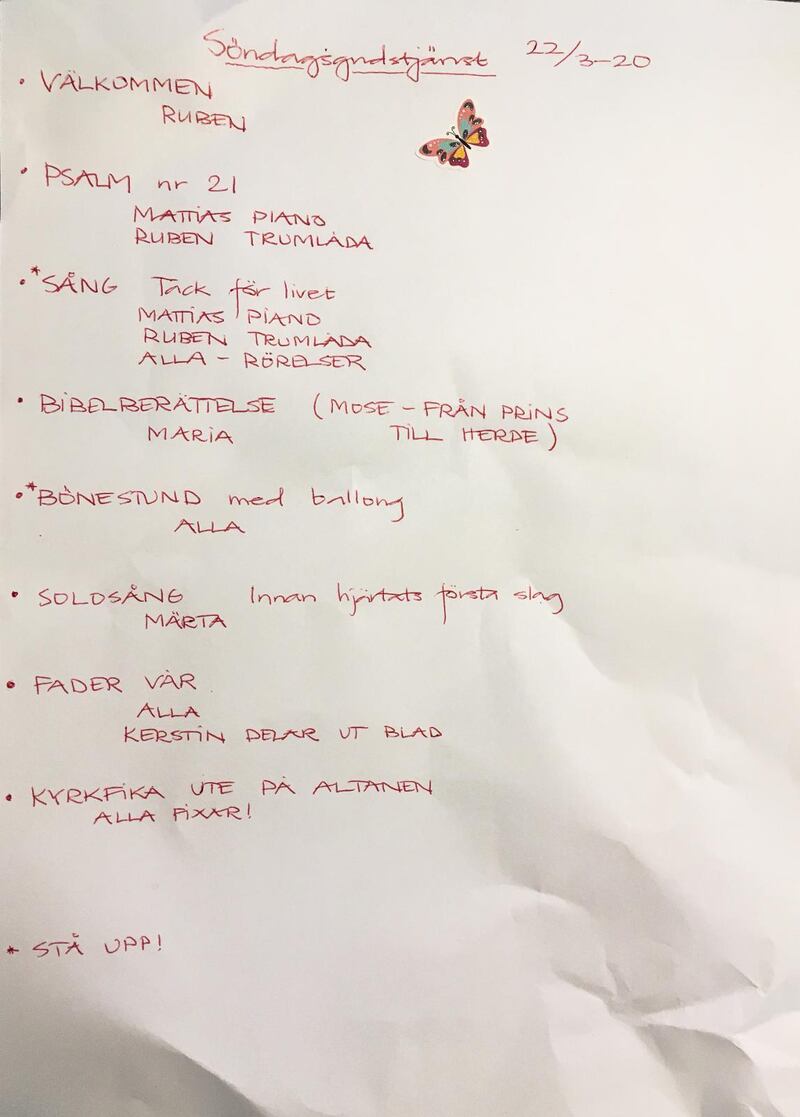 Söndagsgudstjänst 22/3-20
• VÄLKOMMEN
RUBEN
• PSALM nr 21
MATTIAS PIANO
RUBEN TRUMLÅDA
•*SÅNG Tack för livet
MATTIAS PIANO
RUBEN TRUMLÅDA
ALLA - RÖRELSER
• BIBELBERÄTTELSE (MOSE - FRÅN PRINS
MARIA TILL HERDE)
•*BÖNESTUND med ballong
ALLA
• SOLOSÅNG Innan hjärtats första slag
MÄRTA
• FADER VÅR
ALLA
KERSTIN DELAR UT BLAD
• KYRKFIKA UTE PÅ ALTANEN
ALLA FIXAR!
* STÅ UPP!